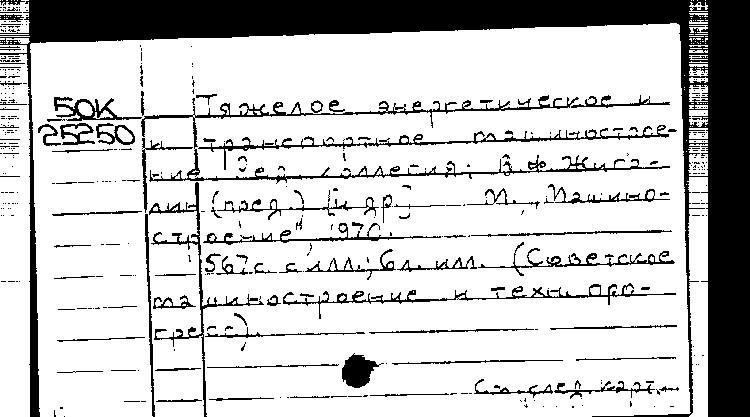 50К
25250
Тяжелое энергетическое и
и транспортное машинострое-
ние. Ред. коллегия: В.Ф. Жига-
лин (пред.) [и др.] М., „Машино-
строение", 1970.
567с. с илл.; 6л. илл. (Советское
машиностроение и техн. про-
гресс).
См. след. карт.